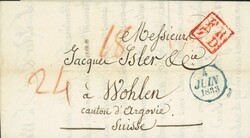 18
Messieurs
Jacques Isler & Cie
24
à Wohlen
4
JUIN
1833
canton d'Argovie
Suisse